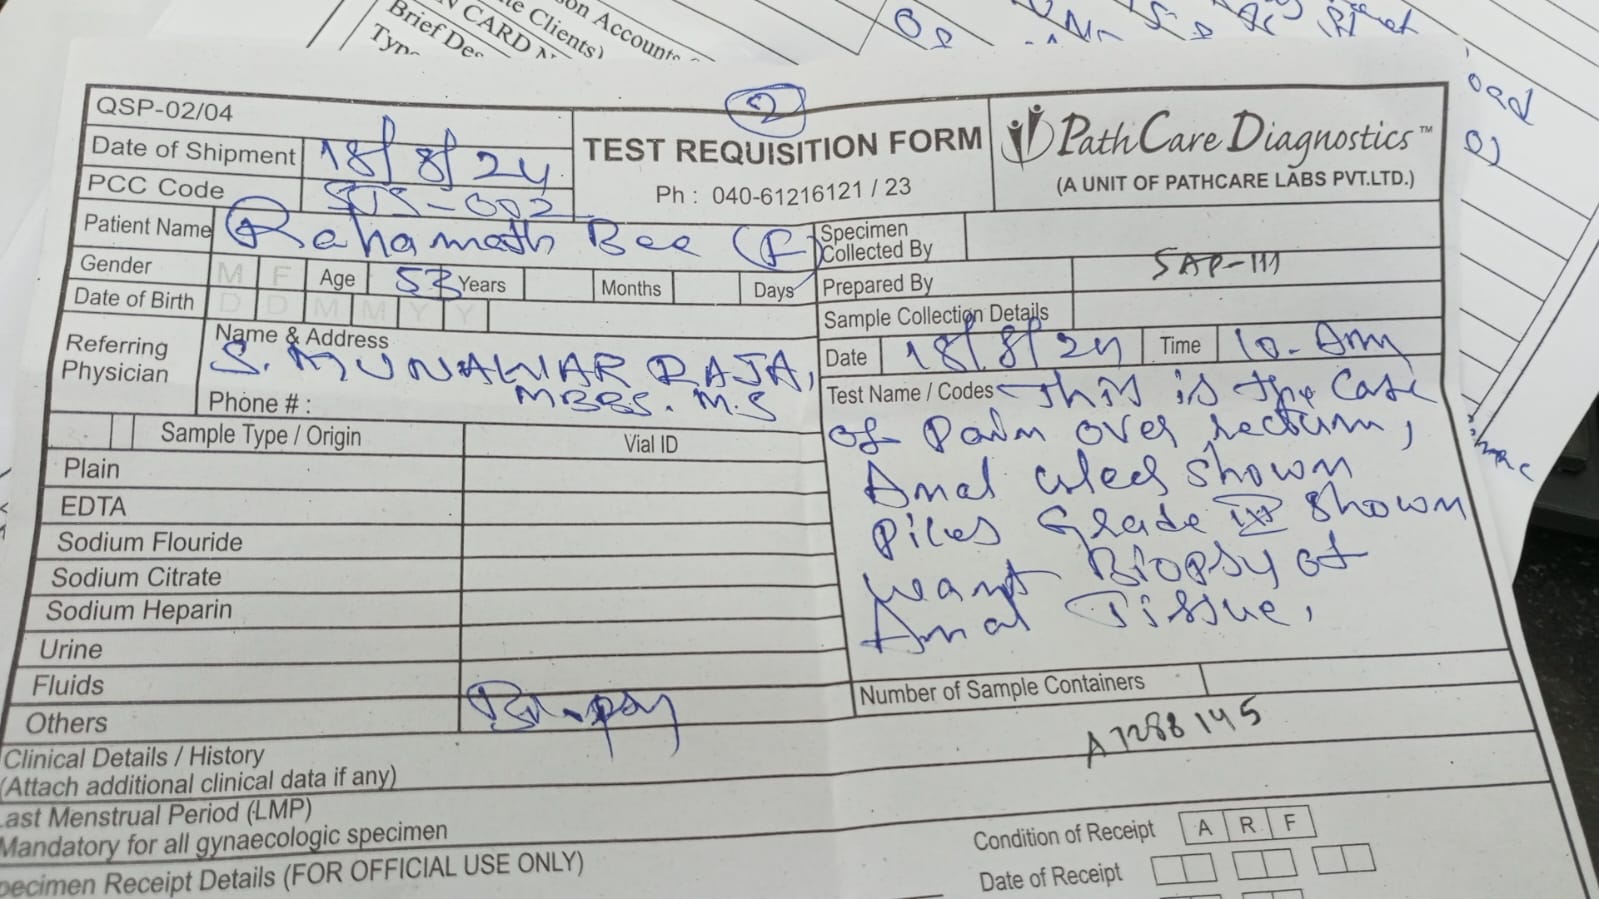 on Accounts
te Clients)
N CARD N
Brief Des
Typ
QSP-02/04
2
Date of Shipment 18/8/24
TEST REQUISITION FORM
PathCare Diagnostics™
PCC Code
Ph : 040-61216121 / 23
(A UNIT OF PATHCARE LABS PVT.LTD.)
Patient Name Rahamath Bee (F)
Specimen
Collected By
Gender M F Age 53 Years Months Days
Prepared By SAP-111
Date of Birth D D M M Y Y
Sample Collection Details
Referring
Physician
Name & Address
S. MUNAWAR RAJA,
MBBS. M.S
Phone # :
Date 18/8/24 Time 10-Am
Test Name / Codes This is the Case
of Pain over rectum,
Anal ulced shown
Piles Grade IV shown
want Biopsy of
Anal Tissue,
Sample Type / Origin Vial ID
Plain
EDTA
Sodium Flouride
Sodium Citrate
Sodium Heparin
Urine
Fluids
Others Biopsy
Number of Sample Containers
A7288145
Clinical Details / History
(Attach additional clinical data if any)
Last Menstrual Period (LMP)
Mandatory for all gynaecologic specimen
pecimen Receipt Details (FOR OFFICIAL USE ONLY)
Condition of Receipt A R F
Date of Receipt